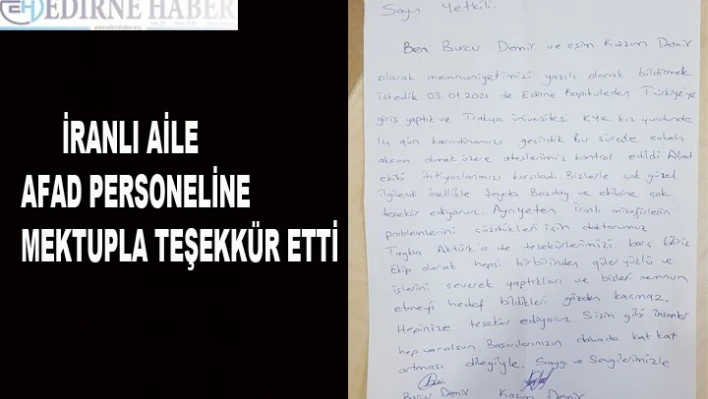 EH EDİRNE HABER
www.edirnehaber.org
İRANLI AİLE
AFAD PERSONELİNE
MEKTUPLA TEŞEKKÜR ETTİ
Sayın Yetkili.
Ben Burcu Demir ve eşim Kazım Demir
olarak memnuniyetimizi yazılı olarak bildirmek
istedik 03.01.2021 de Edirne Kapıkuleden Türkiye'ye
giriş yaptık ve Trakya üniversitesi KYK kız yurdunda
14 gün karantinamızı geçirdik Bu sürede sabah
akşam olmak üzere ateşlerimiz kontrol edildi Afad
ekibi ihtiyaçlarımızı karşıladı. Bizlerle çok güzel
ilgilendi özellikle Bozdağ ve ekibine çok
teşekür ediyoruz. Ayrıyeten iranlı misafirlerin
problemlerini çözdükleri için doktorumuz
Tuğba Aktürk'e de teşekürlerimizi borç biliriz
Ekip olarak hepsi birbirinden güler yüzlü ve
işlerini severek yaptıkları ve bizleri memnun
etmeyi hedef bildikleri gözden kaçmaz.
Hepinize teşekür ediyoruz Sizin gibi insanlar
hep varolsun. Başarılarınızın dahada kat kat
artması dileğiyle. Saygı ve Sevgilerimizle
Burcu Demir Kazım Demir